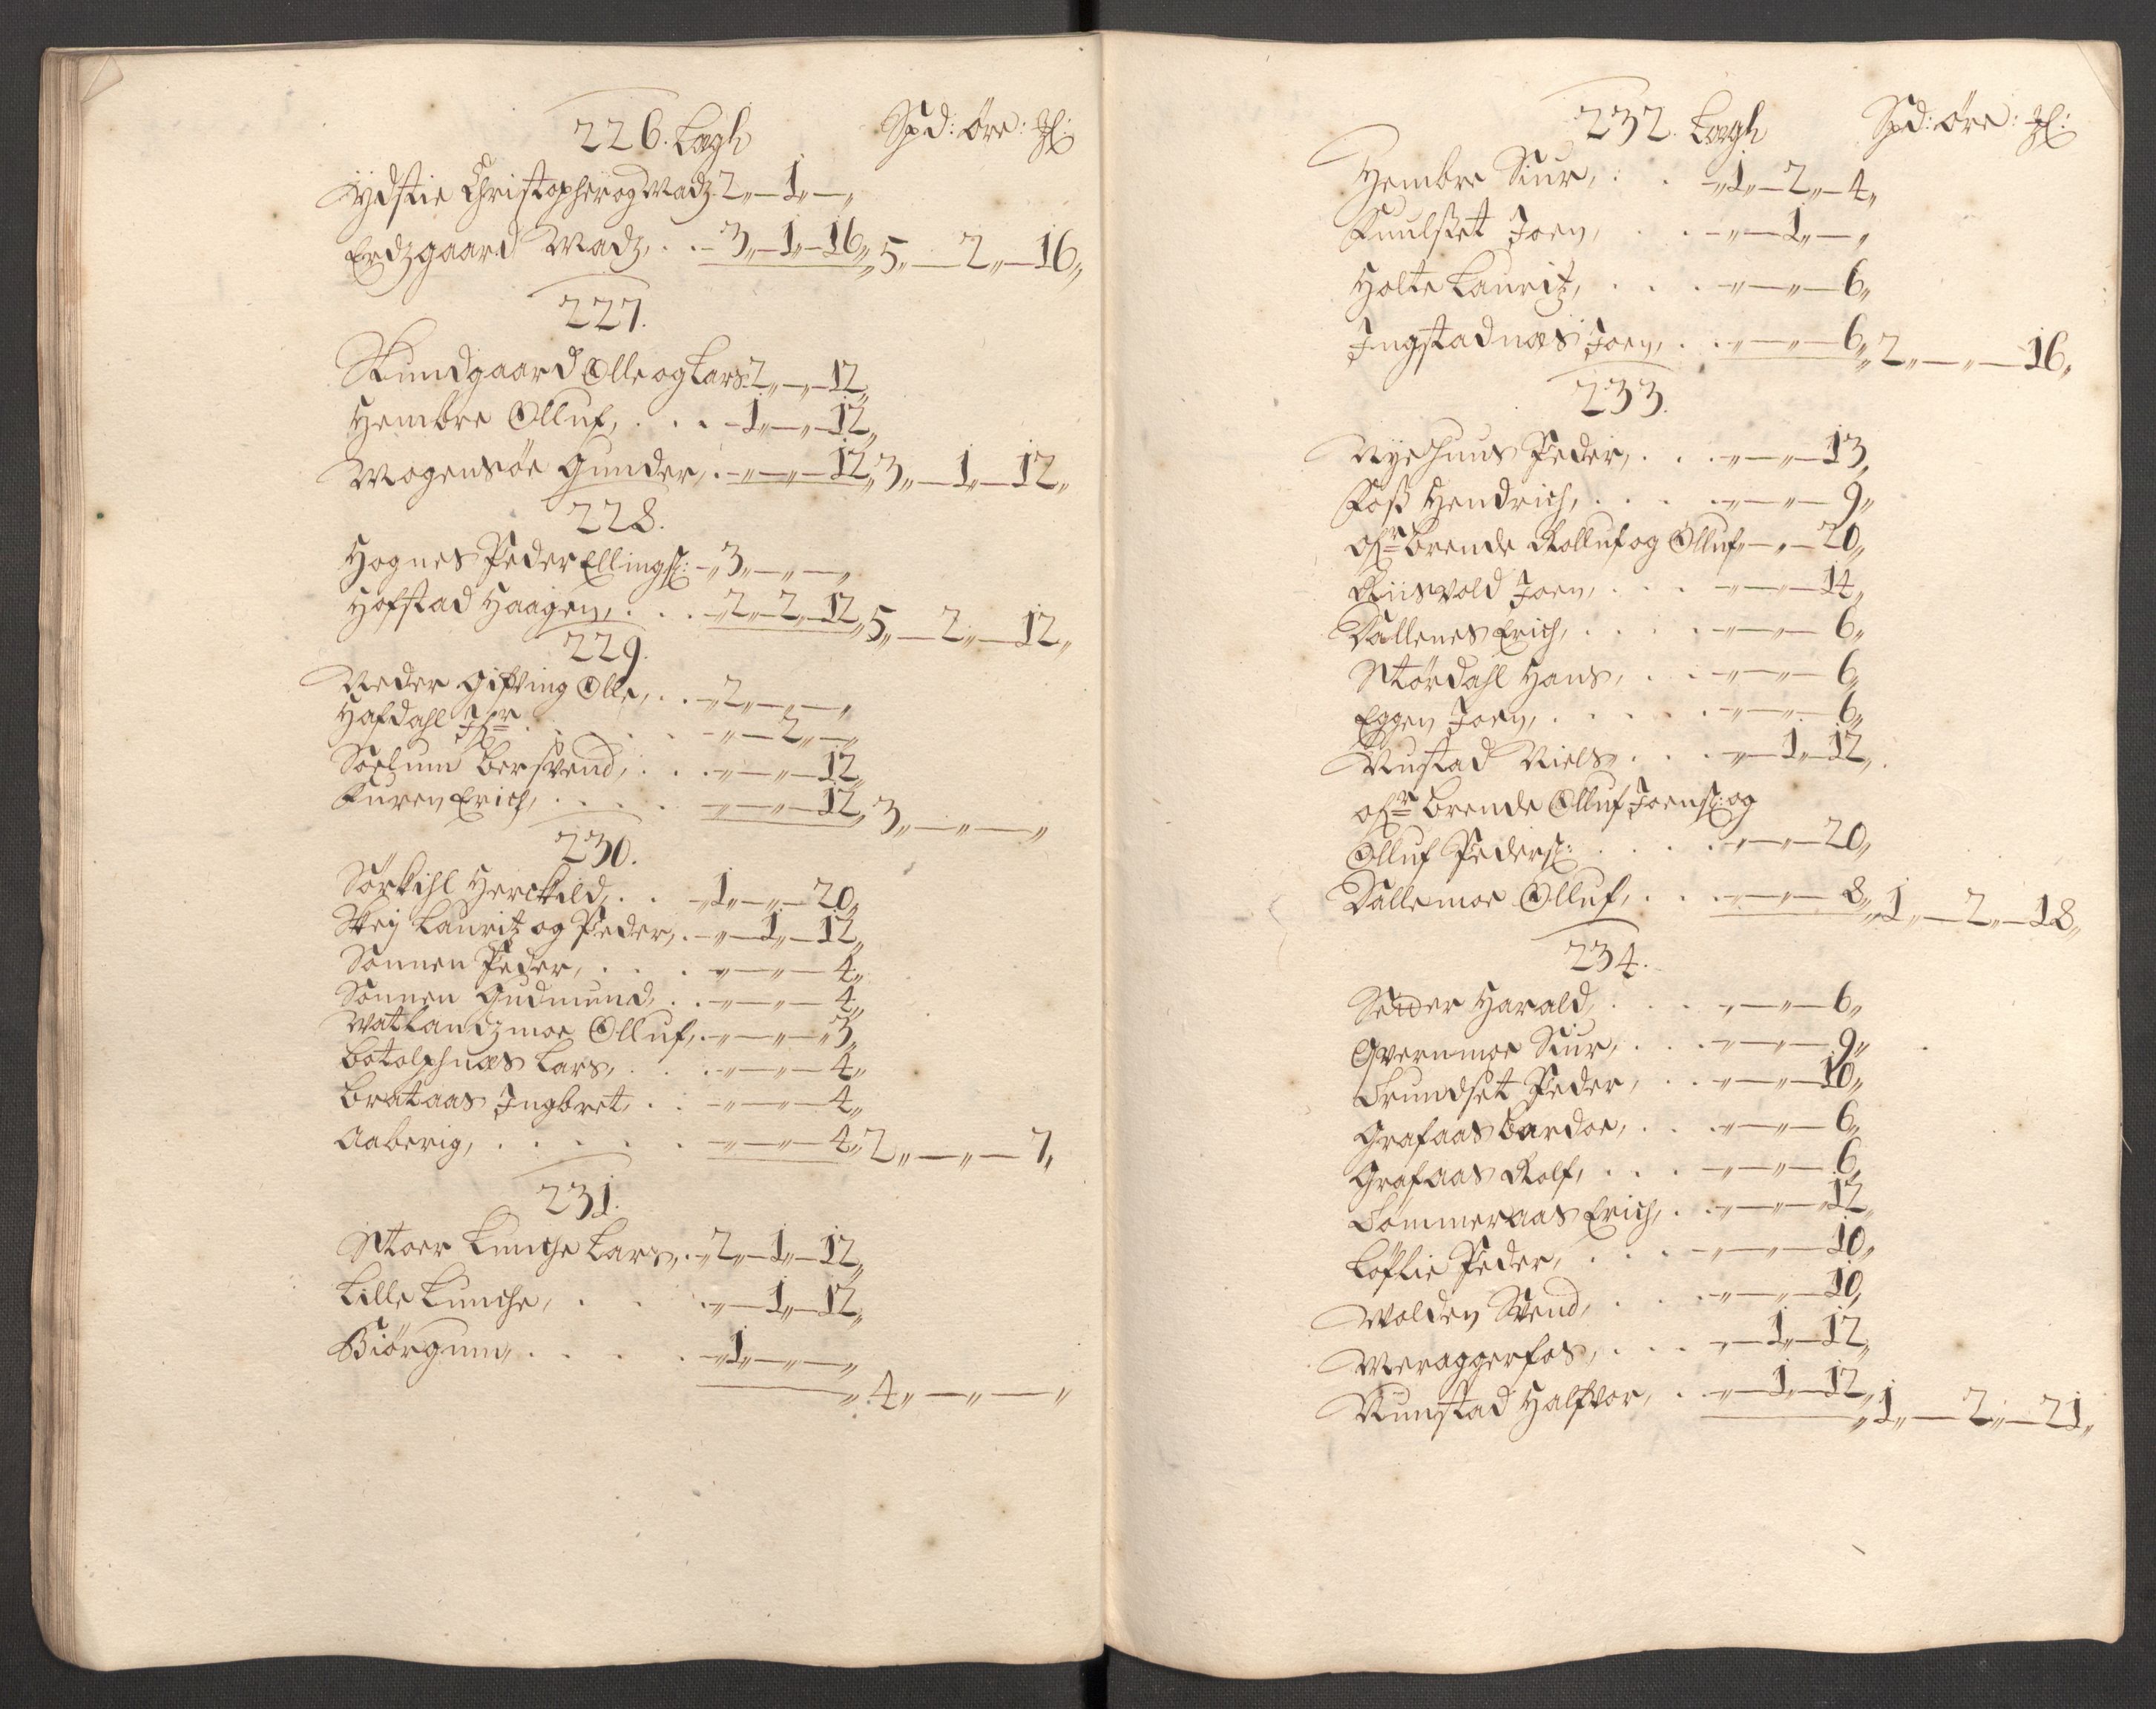 226. Lægh Spd: öre: ₰:
Ydstie Christopher og Madz 2„—1„—„
Erdzgaard Madz, . . - 3„—1„—16„ 5„—2„—16„
227.
Skundgaard Olle og Lars 2„—„—12„
Hembre Olluf, . . . -1„—„—12„
Mogensöe Gunder, . -„—„—12„ 3„—1„—12„
228.
Hognes Peder Ellings: -„3„—„—„
Hofstad Haagen, . . . -„2„—2„—12„ 5„—2„—12„
229.
Neder Gifving Olle, . . -„2„—„—„
Hafdahl . . . . . -„—2„—„
Soelum Bersvend, . . . -„—„—12„
Furen Erich, . . . . . -„—„—12„ 3„—„—„
230.
Sörkihl Herckild, . . -„1„—„—20„
Skej Lauritz og Peder, . -„—1„—12„
Sonnen Peder, . . . . „—„—4„
Sonnen Gudmund, . . -„—„—4„
Watlandzmoe Olluf, . -„—„—3„
Botolphnæs Lars, . . . -„—„—4„
Brataas Ingbret, . . -„—„—4„
Aaberig, . . . . . . -„—„—4„ 2„—„—7„
231.
Stoer Lunche Lars, . -„2„—1„—12„
Lille Lunche, . . . -„—1„—12„
Biörgum, . . . . -„1„—„—„
„4„—„—„
232. Lægh Spd: öre: ₰:
Hembre Siur, . . -„1„—2„—4„
Kuulset Joen, . . . -„—1„—„
Holte Lauritz, . . . -„—„—6„
Ingstadnæs Joen, . . -„—„—6„ 2„—„—16„
233.
Nyehuus Peder, . . . -„—„—13„
Foss Hendrich, . . . . -„—„—9„
Ofr Brende Rolluf og Olluf, —„—20„
Riisvold Joen, . . . -„—„—14„
Dallenes Erich, . . . . -„—„—6„
Stördahl Hans, . . . -„—„—6„
Eggen Joen, . . . . . -„—„—6„
Rustad Niels, . . . -„—1„—12„
Ofr Brende Olluf Joens: og
Olluf Peders: . . . . -„—„—20„
Dallemoe Olluf, . . . -„—„—8„ 1„—2„—18„
234.
Sæder Harald, . . . . -„—„—6„
Qvernmoe Siur, . . . -„—„—9„
Trundset Peder, . . . -„—„—10„
Grafaas Bardoe, . . . -„—„—6„
Grafaas Rolf, . . . . -„—„—6„
Sommeraas Erich, . . -„—„—12„
Löflie Peder, . . . . -„—„—10„
Wolden Svend, . . . . -„—„—10„
Meraggerfos, . . . -„—1„—12„
Kunstad Halfvor, . . -„—1„—12„ 1„—2„—21„